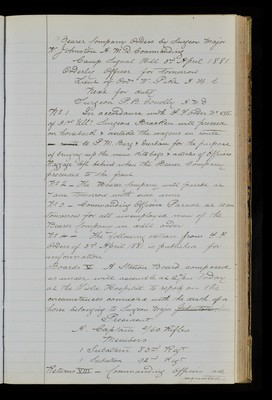 Bearer Company Orders by Surgeon Major
W Johnston A.M.D Commanding
Camp Signal Hill 3rd April 1881
Orderly Officer for tomorrow
Lieut of Orderlies W Pike A.H.C
Next for duty
Surgeon P.B. Connolly A.M.D
No 1. In accordance with
Surgeon Bracken will proceed
on horseback & outside the wagons in
to P.M. Burg & Durban for the purpose
of bringing up the mess &
Baggage left behind when the Bearer Company
proceeded to the front
No 2 The Bearer Company will parade as
tomorrow
No 3 Commanding Officers Parade at 10 am
tomorrow for all unemployed men of the
Bearer Company
No 4 The following extract from H.Q.
Orders of 3rd April 1881 is published for
information
Boards V A Station Board composed
as under will assemble at
at the Field Hospital to report on the
circumstances connected with the death of a
horse belonging to Surgeon Major Johnston
President
A Captain 2/60 Rifles
Members
1 Subaltern 83rd Regt
1 Subaltern 92nd Regt
Returns VIII Commanding Officers are
requested